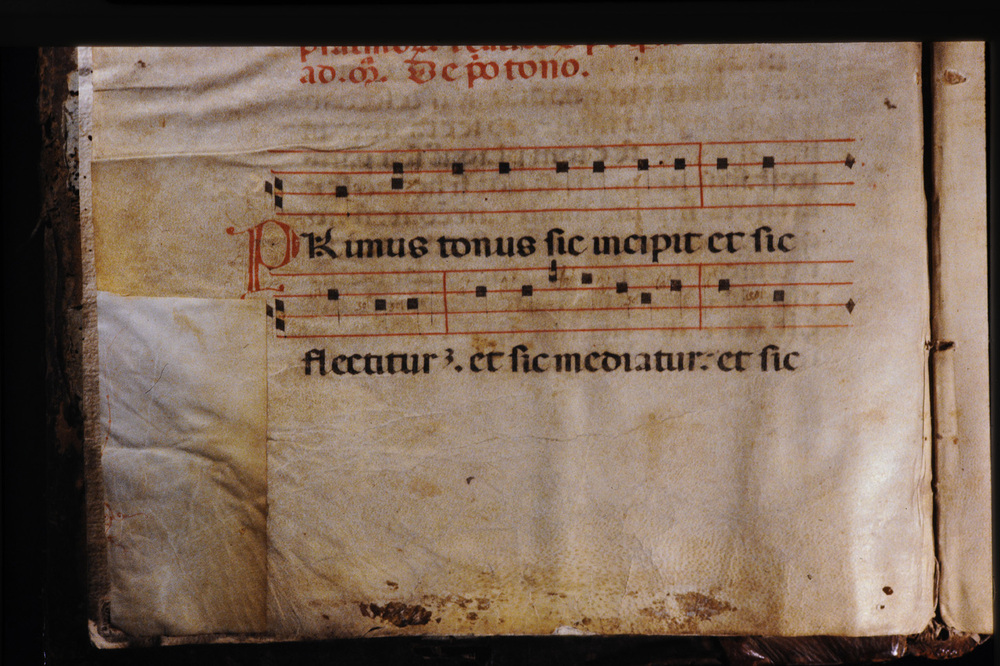 ad. De po tono.
PRimus tonus sic incipit et sic
flectitur ⁊. et sic mediatur: et sic